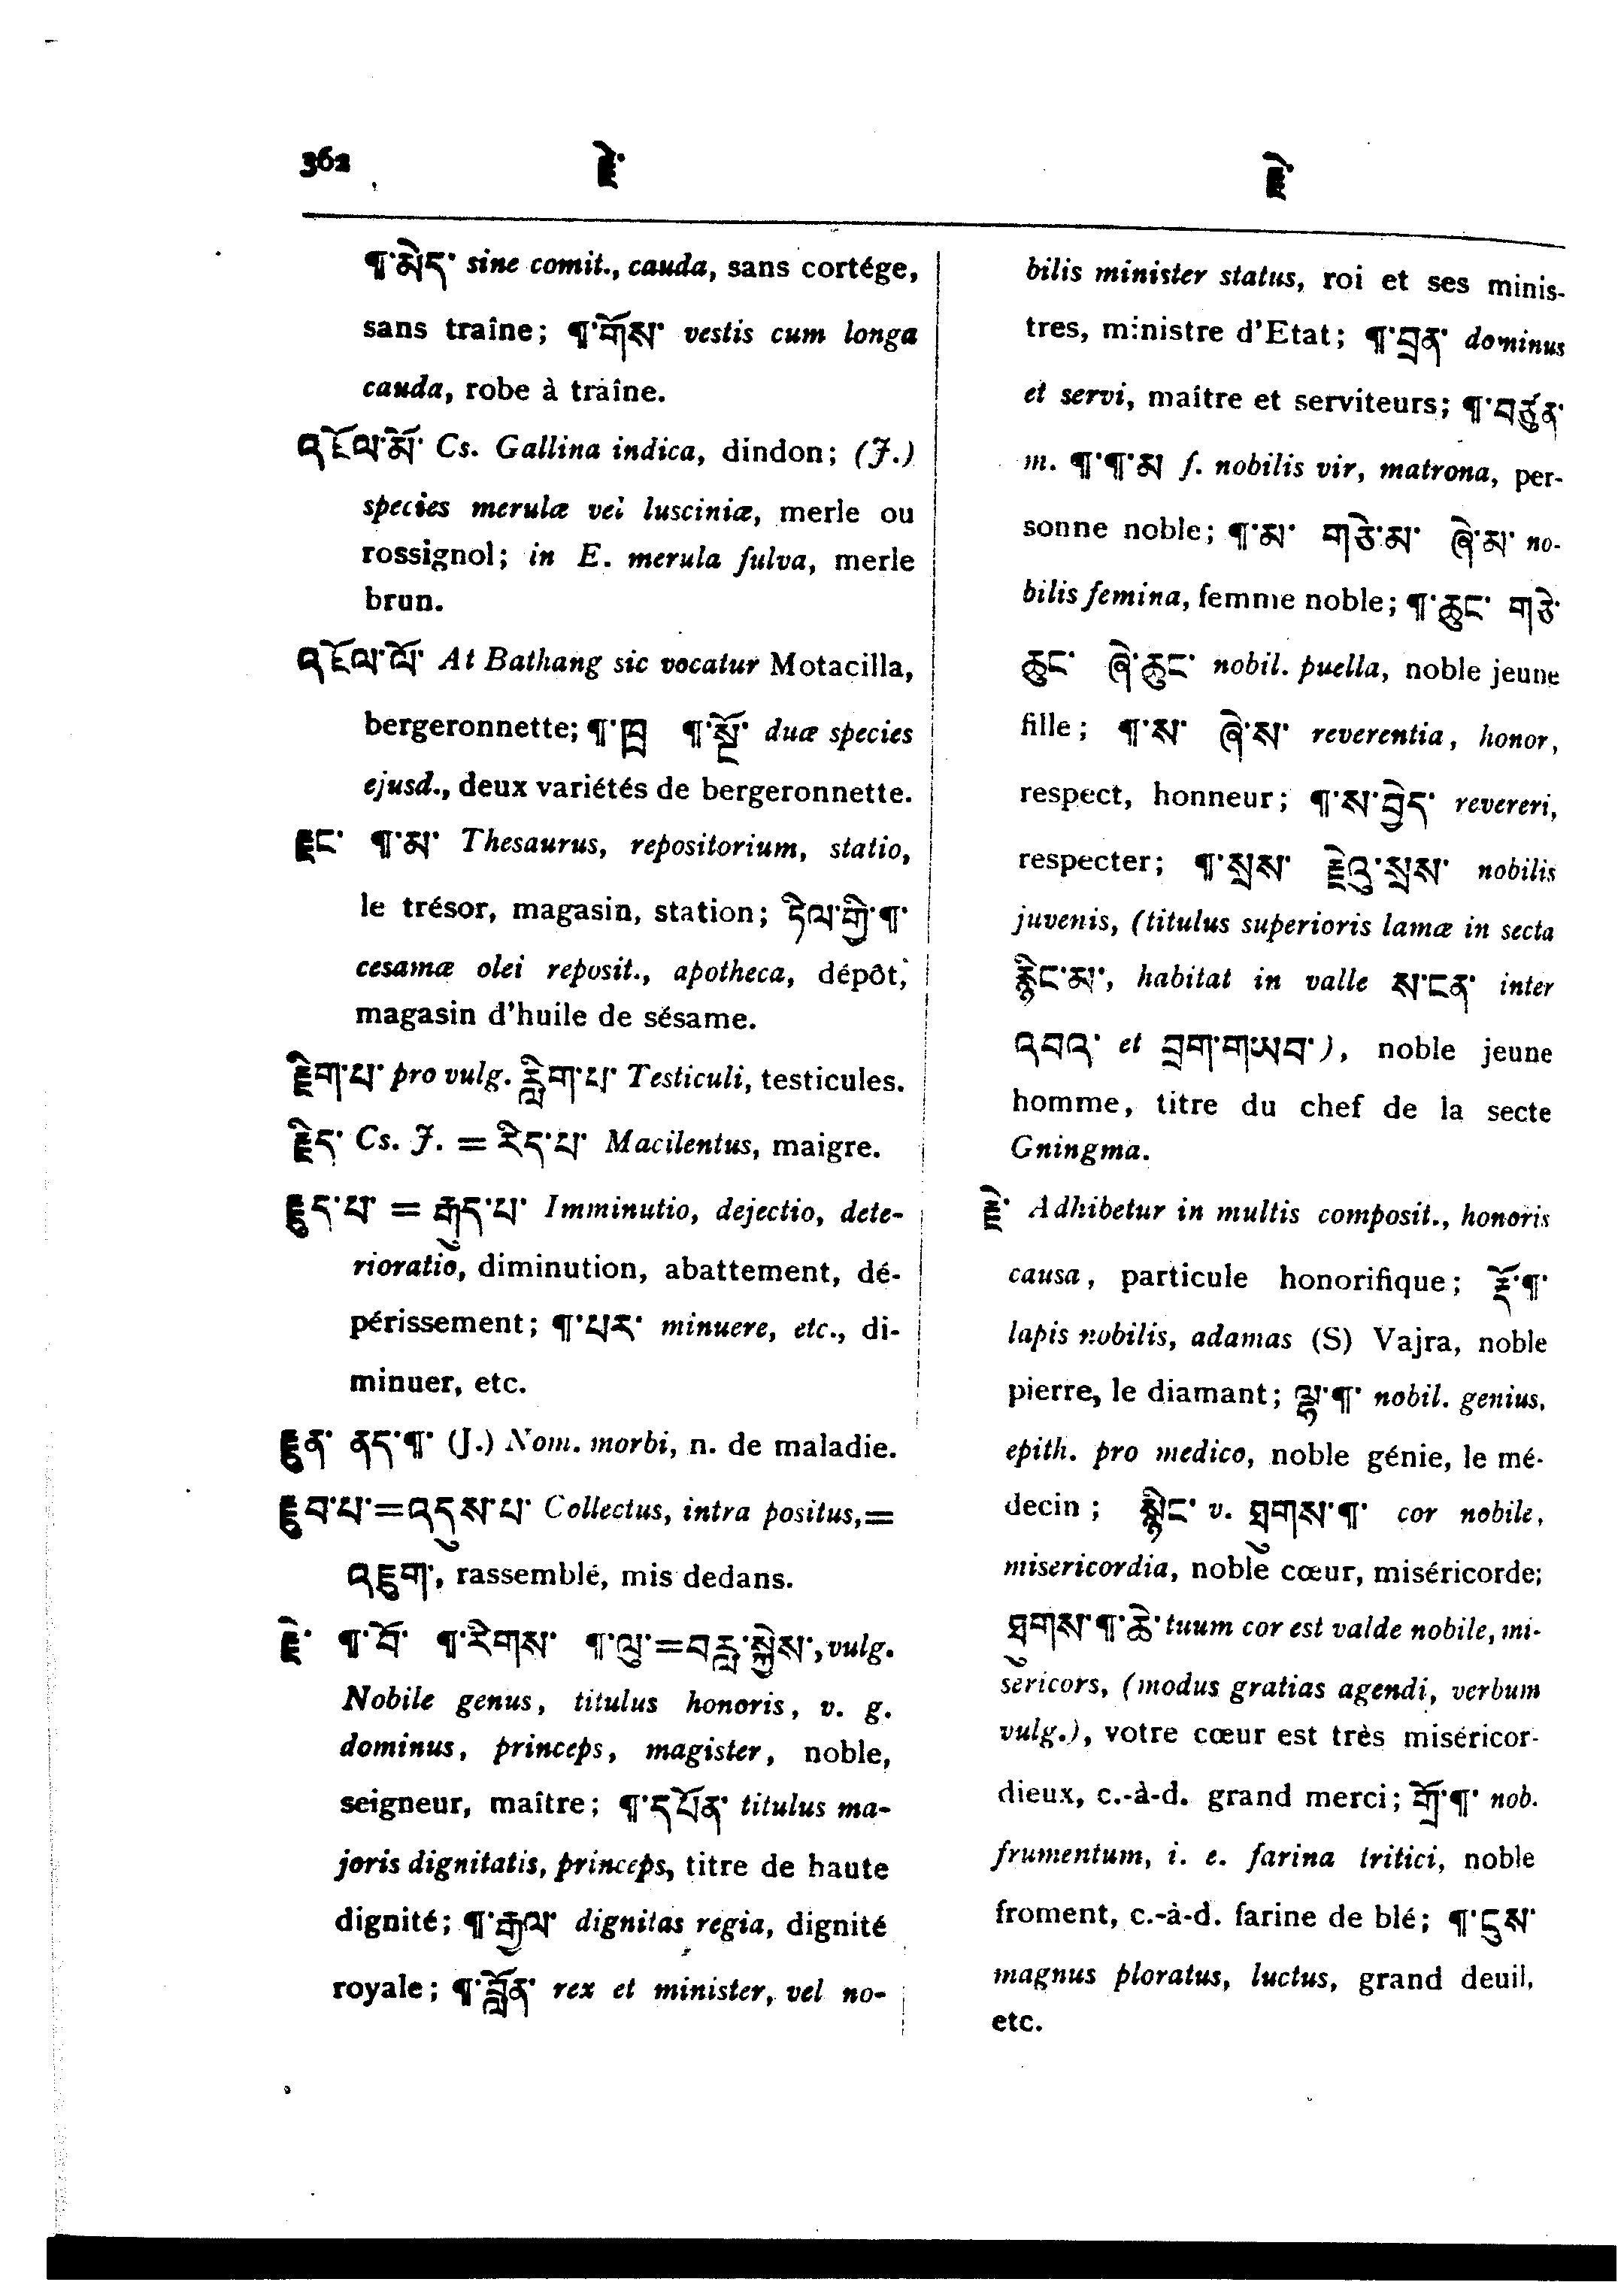 362
རྗེ་
རྗེ་
¶་མེད་ sine comit., cauda, sans cortége,
sans traîne; ¶་གོས་ vestis cum longa
cauda, robe à traîne.
འཇོལ་མོ་ Cs. Gallina indica, dindon; (J.)
species merulæ vel lusciniæ, merle ou
rossignol; in E. merula fulva, merle
brun.
འཇོལ་ལོ་ At Bathang sic vocatur Motacilla,
bergeronnette; ¶་ཁྲ ¶་སྔོ་ duæ species
ejusd., deux variétés de bergeronnette.
རྗང་ ¶་མ་ Thesaurus, repositorium, statio,
le trésor, magasin, station; ཏིལ་གྱི་¶་
cesamæ olei reposit., apotheca, dépôt,
magasin d'huile de sésame.
རྗིག་པ་ pro vulg. རླིག་པ་ Testiculi, testicules.
རྗིད་ Cs. J. = རིད་པ་ Macilentus, maigre.
རྗུད་པ་ = རྒུད་པ་ Imminutio, dejectio, dete-
rioratio, diminution, abattement, dé-
périssement; ¶་པར་ minuere, etc., di-
minuer, etc.
རྗུན་ ནད་¶་ (J.) Nom. morbi, n. de maladie.
རྗུབ་པ་=འདུས་པ་ Collectus, intra positus,=
འཇུག་, rassemblé, mis dedans.
རྗེ་ ¶་བོ་ ¶་རིགས་ ¶་ལུ་=བརླ་སྐྱེས་, vulg.
Nobile genus, titulus honoris, v. g.
dominus, princeps, magister, noble,
seigneur, maître; ¶་དཔོན་ titulus ma-
joris dignitatis, princeps, titre de haute
dignité; ¶་རྒྱལ་ dignitas regia, dignité
royale; ¶་བློན་ rex et minister, vel no-
bilis minister status, roi et ses minis-
tres, ministre d'Etat; ¶་བྲན་ dominus
et servi, maître et serviteurs; ¶་བཙུན་
m. ¶་¶་མ f. nobilis vir, matrona, per-
sonne noble; ¶་མ་ གཅེ་མ་ ཞེ་མ་ no-
bilis femina, femme noble; ¶་ཆུང་ གཅེ་
ཆུང་ ཞེ་ཆུང་ nobil. puella, noble jeune
fille; ¶་ས་ ཞེ་ས་ reverentia, honor,
respect, honneur; ¶་ས་བྱེད་ revereri,
respecter; ¶་སྲས་ རྗེའུ་སྲས་ nobilis
juvenis, (titulus superioris lamæ in secta
རྙིང་མ་, habitat in valle ས་ངན་ inter
འབའ་ et བྲག་གཡབ་), noble jeune
homme, titre du chef de la secte
Gningma.
རྗེ་ Adhibetur in multis composit., honoris
causa, particule honorifique; རྡོ་¶་
lapis nobilis, adamas (S) Vajra, noble
pierre, le diamant; ལྷ་¶་ nobil. genius,
epith. pro medico, noble génie, le mé-
decin; སྙིང་ v. ཐུགས་¶་ cor nobile,
misericordia, noble cœur, miséricorde;
ཐུགས་¶་ཆེ་ tuum cor est valde nobile, mi-
sericors, (modus gratias agendi, verbum
vulg.), votre cœur est très miséricor-
dieux, c.-à-d. grand merci; གྲོ་¶་ nob.
frumentum, i. e. farina tritici, noble
froment, c.-à-d. farine de blé; ¶་ངུས་
magnus ploratus, luctus, grand deuil,
etc.